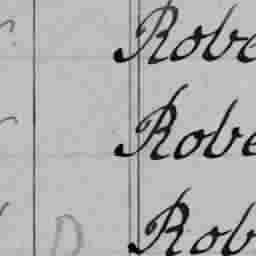 Robe
Robe
Rob